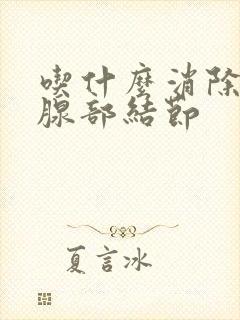 喫什麼消除
腺部結節
夏言冰